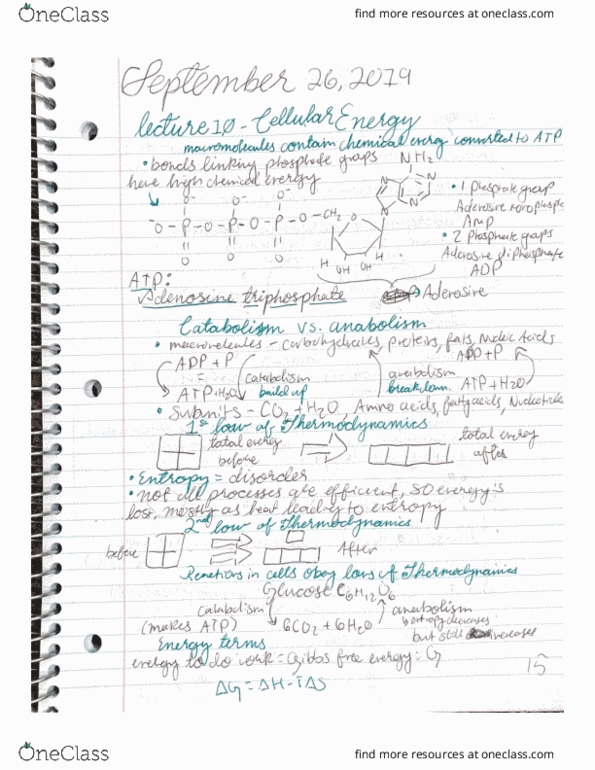 OneClass
find more resources at oneclass.com
September 26, 2019
lecture 10 - Cellular Energy
macromolecules contain chemical energy converted to ATP
• bonds linking phosphate groups
have high chemical energy
NH2
N
N
N
N
• 1 phosphate group
Adenosine monophosphate
AMP
O⁻ O⁻ O⁻
⁻O - P - O - P - O - P - O - CH2
O
O O O
H H
OH OH
• 2 Phosphate groups
Adenosine diphosphate
ADP
ATP:
Adenosine triphosphate
Adenosine
Catabolism vs. anabolism
• macromolecules - carbohydrates, proteins, fats, Nucleic Acids
ADP + P
ADP + P
catabolism
build up
anabolism
breakdown
ATP + H2O
ATP + H2O
• Subunits - CO2 + H2O, Amino acids, fatty acids, Nucleotide
1st law of Thermodynamics
total energy
before
total energy
after
• Entropy = disorder
• not all processes are efficient, so energy is
lost, mostly as heat leading to entropy
2nd law of Thermodynamics
before
After
Reactions in cells obey laws of Thermodynamics
Glucose C6H12O6
catabolism
(makes ATP)
6CO2 + 6H2O
anabolism
entropy decreases
but still increases
Energy terms
energy to do work = Gibbs free energy: G
15
ΔG = ΔH - TΔS
OneClass
find more resources at oneclass.com